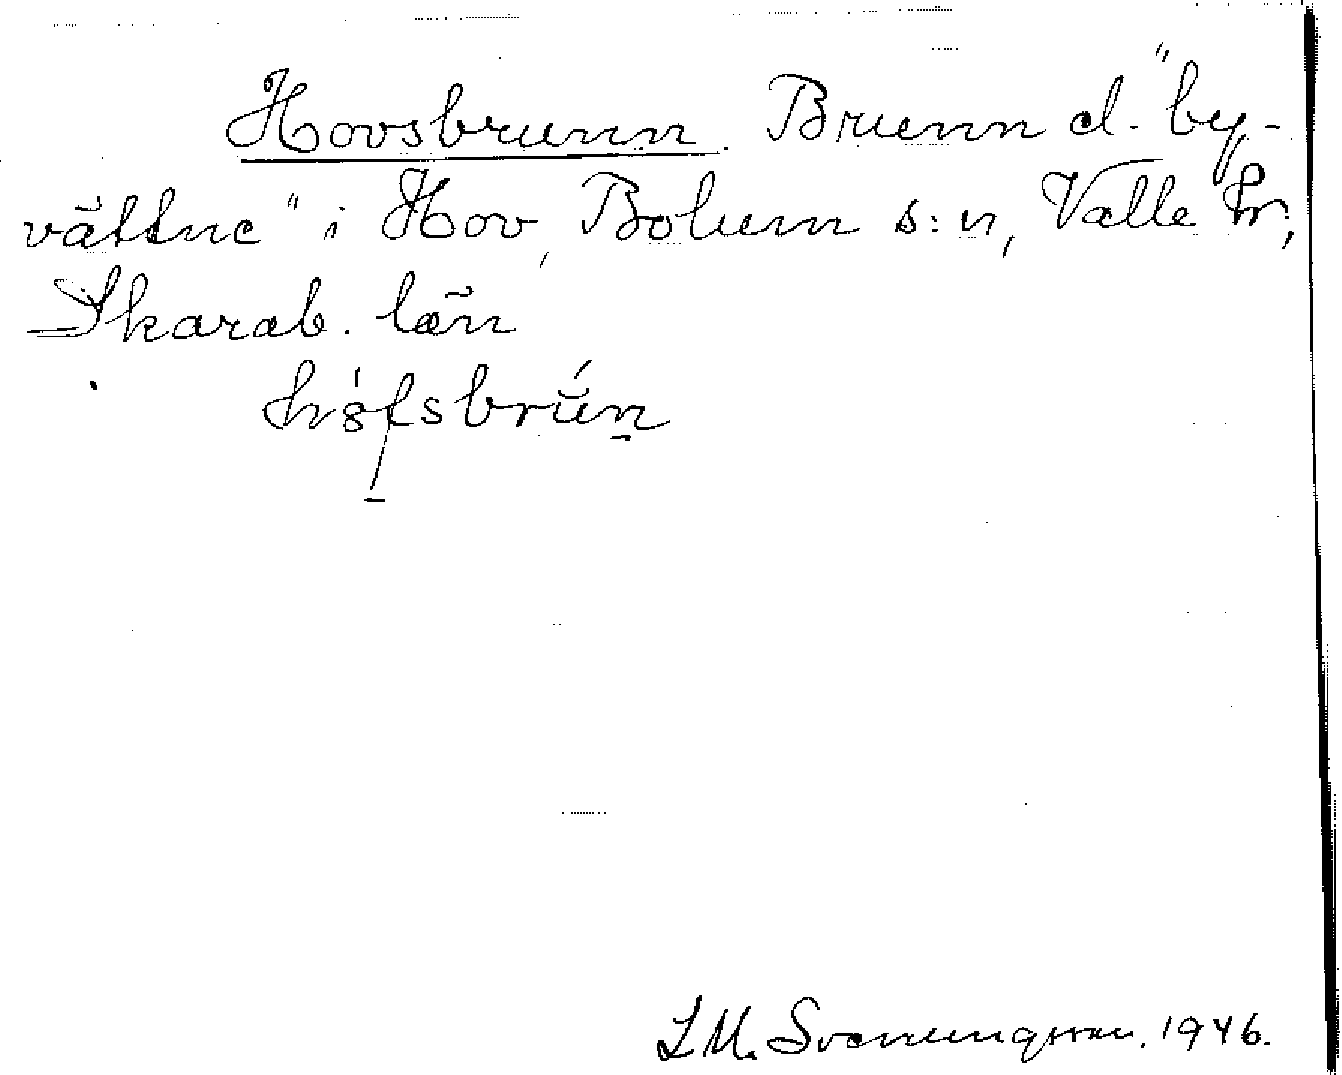 Hovsbrunn. Brunn el. "by-
vättne" i Hov, Bolum s:n, Valle hr,
Skarab. län
L M. Svenungsson. 1946.